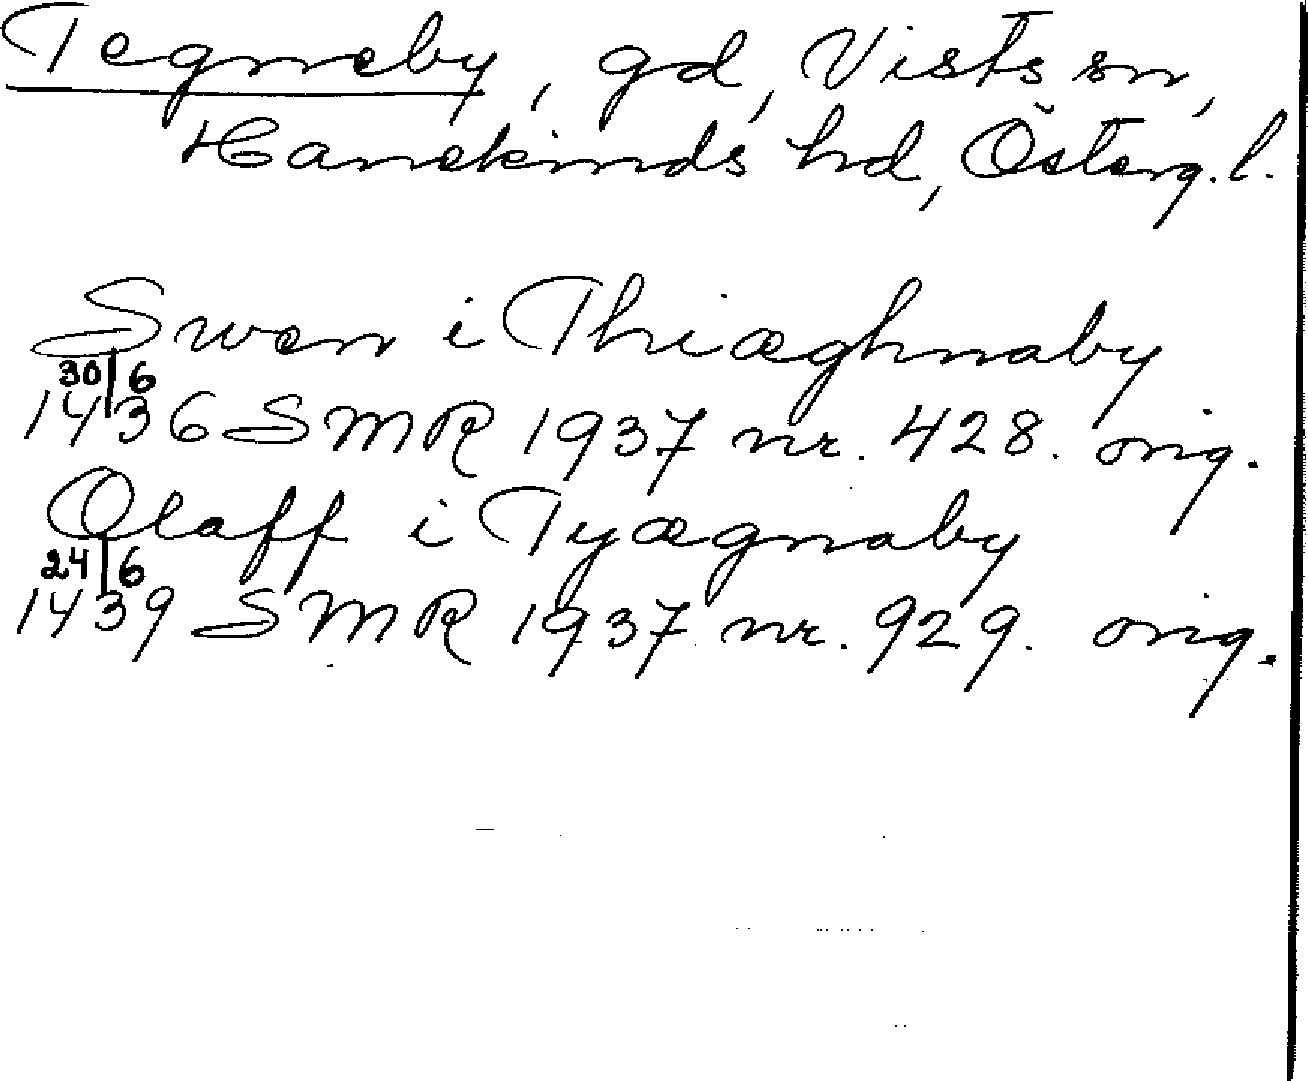 Tegneby, gd, Vists sn,
Hanekinds hd, Österg.l.
Swen i Thiæghnaby
30/6
1436 SMR 1937 nr. 428. orig.
Olaff i Tyægnaby
24/6
1439 SMR 1937 nr. 929. orig.